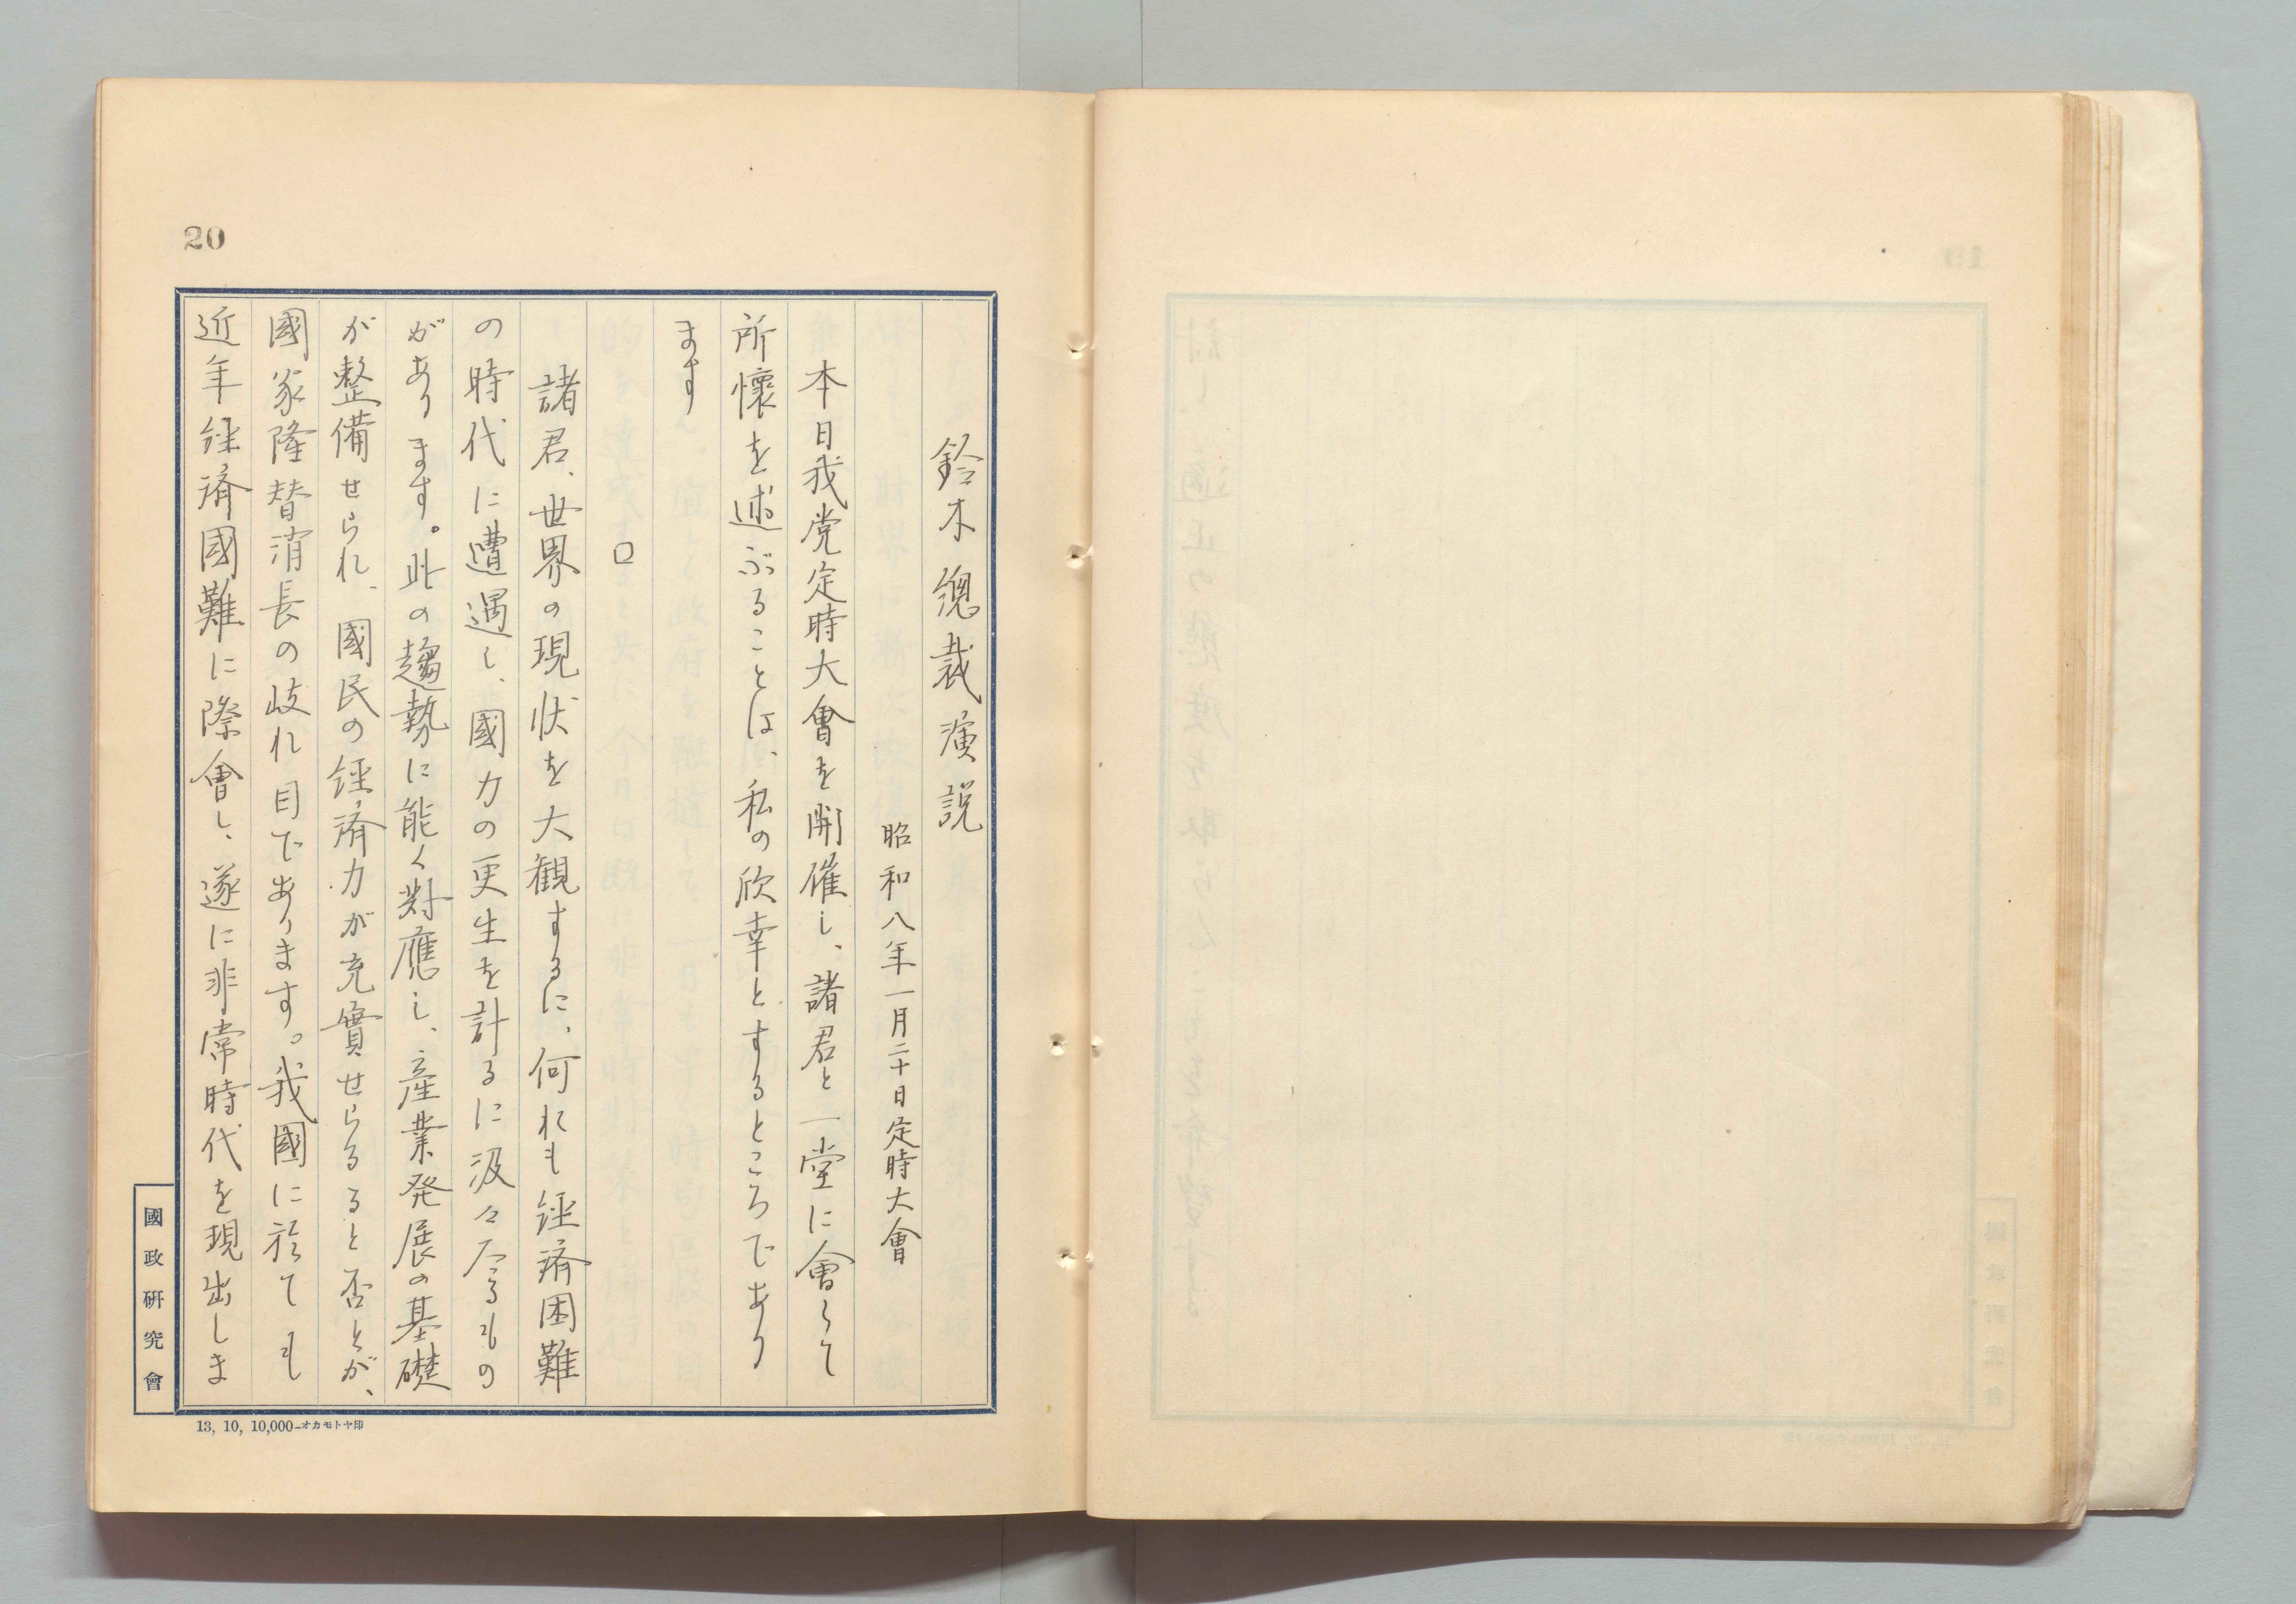 20
鈴木總裁演説
昭和八年一月二十日定時大會
本日我党定時大會を開催し、諸君と一堂に會して
所懷を述ぶることは、私の欣幸とするところであり
ます
□
諸君、世界の現状を大観するに、何れも経済困難
の時代に遭遇し、國力の更生を計るに汲々たるもの
があります。此の趨勢に能く對應し、産業発展の基礎
が整備せられ、國民の経済力が充實せらるると否とが、
國家隆替消長の岐れ目であります。我國に於ても
近年経済國難に際會し、遂に非常時代を現出しま
國政硏究會
13, 10, 10,000-オカモトヤ印